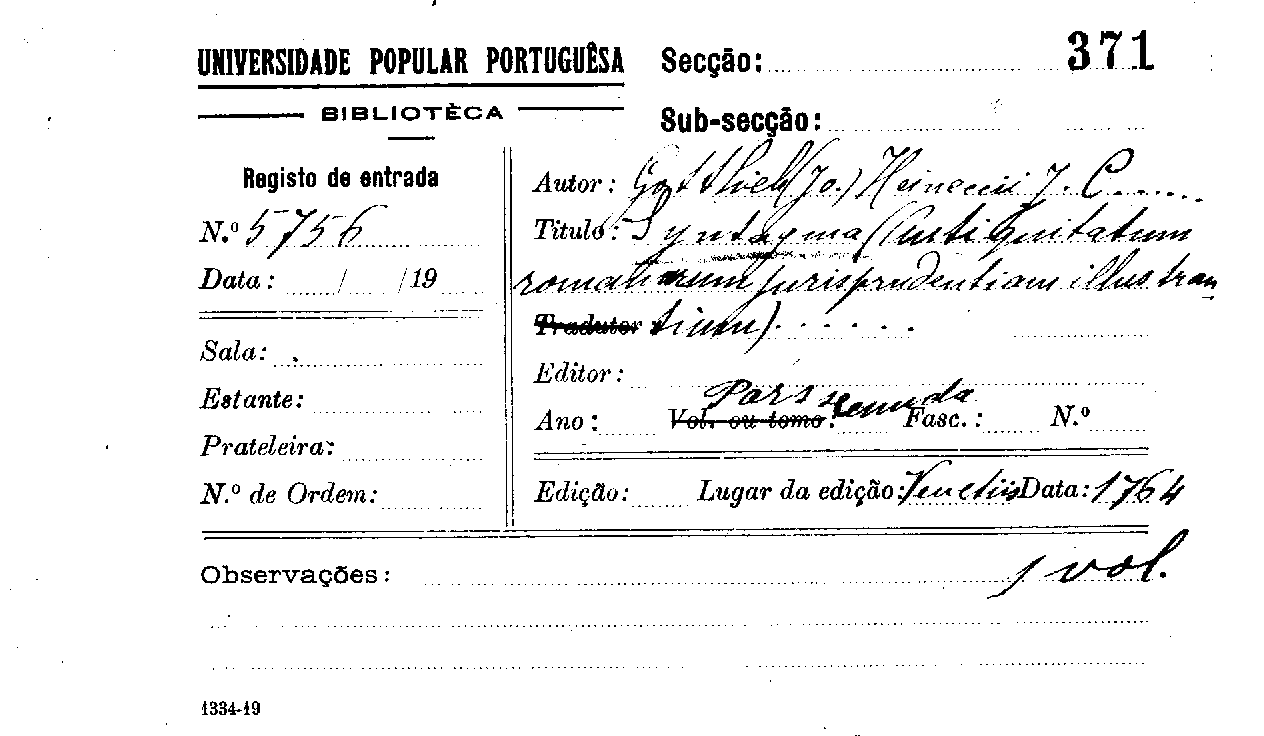 UNIVERSIDADE POPULAR PORTUGUÊSA
BIBLIOTÈCA
Secção: 371
Sub-secção:
Registo de entrada
N.º 5756
Data: / /19
Sala:
Estante:
Prateleira:
N.º de Ordem:
Autor: Gottlieb (Jo.) Heineccii J. C.
Titulo: Syntagma (Antiquitatum
romanarum jurisprudentiam illustran-
Tradutor tium)
Editor:
Pars secunda
Ano: Vol. ou tomo: Fasc.: N.º
Edição: Lugar da edição: Venetiis Data: 1764
Observações: 1 vol.
1334-19